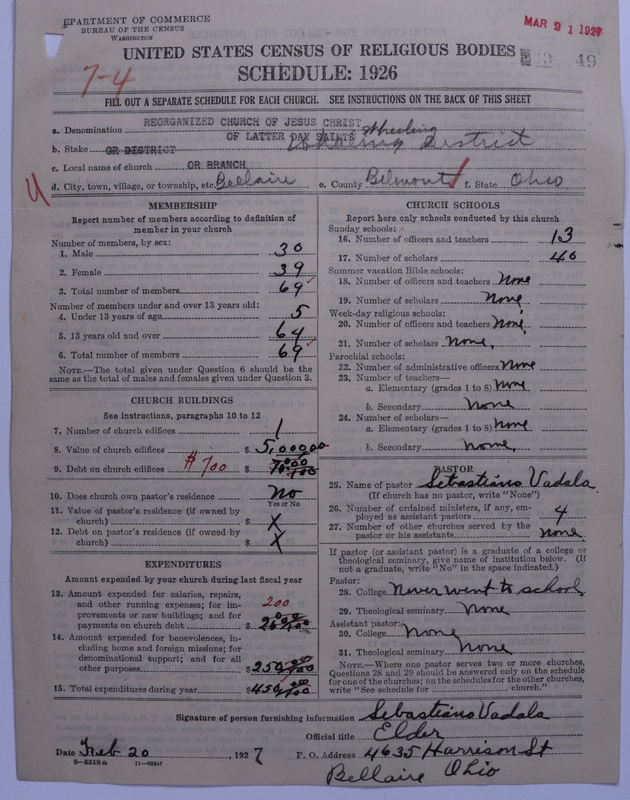 EPARTMENT OF COMMERCE
BUREAU OF THE CENSUS
WASHINGTON
MAR 21 1927
UNITED STATES CENSUS OF RELIGIOUS BODIES
49
7-4
SCHEDULE: 1926
FILL OUT A SEPARATE SCHEDULE FOR EACH CHURCH. SEE INSTRUCTIONS ON THE BACK OF THIS SHEET
REORGANIZED CHURCH OF JESUS CHRIST
a. Denomination OF LATTER DAY SAINTS Wheeling
b. Stake OR DISTRICT District
c. Local name of church OR BRANCH
d. City, town, village, or township, etc. Bellaire e. County Belmont f. State Ohio
MEMBERSHIP
Report number of members according to definition of
member in your church
Number of members, by sex:
1. Male 30
2. Female 39
3. Total number of members 69
Number of members under and over 13 years old:
4. Under 13 years of age 5
5. 13 years old and over 64
6. Total number of members 69
NOTE.—The total given under Question 6 should be the
same as the total of males and females given under Question 3.
CHURCH BUILDINGS
See instructions, paragraphs 10 to 12
7. Number of church edifices 1
8. Value of church edifices $ 5,00000
9. Debt on church edifices $700 $
10. Does church own pastor's residence No
Yes or No
11. Value of pastor's residence (if owned by
church) $ X
12. Debt on pastor's residence (if owned by
church) $ X
EXPENDITURES
Amount expended by your church during last fiscal year
13. Amount expended for salaries, repairs,
and other running expenses; for im-
provements or new buildings; and for
payments on church debt 200 $ 200
14. Amount expended for benevolences, in-
cluding home and foreign missions; for
denominational support; and for all
other purposes $ 250
15. Total expenditures during year $ 450
CHURCH SCHOOLS
Report here only schools conducted by this church
Sunday schools:
16. Number of officers and teachers 13
17. Number of scholars 40
Summer vacation Bible schools:
18. Number of officers and teachers None
19. Number of scholars None
Week-day religious schools:
20. Number of officers and teachers None
21. Number of scholars None.
Parochial schools:
22. Number of administrative officers None
23. Number of teachers—
a. Elementary (grades 1 to 8) None
b. Secondary None
24. Number of scholars—
a. Elementary (grades 1 to 8) None
b. Secondary None,
PASTOR
25. Name of pastor Sebastiano Vadala.
(If church has no pastor, write "None")
26. Number of ordained ministers, if any, em-
ployed as assistant pastors 4
27. Number of other churches served by the
pastor or his assistants None.
If pastor (or assistant pastor) is a graduate of a college or
theological seminary, give name of institution below. (If
not a graduate, write "No" in the space indicated.)
Pastor:
28. College Never went to school
29. Theological seminary None
Assistant pastor:
30. College None
31. Theological seminary None
NOTE.—Where one pastor serves two or more churches,
Questions 28 and 29 should be answered only on the schedule
for one of the churches; on the schedules for the other churches,
write "See schedule for church."
Signature of person furnishing information Sebastiano Vadala
Official title Elder
Date Feb 20, 1927 P. O. Address 4635 Harrison St
8-5518a
Bellaire Ohio